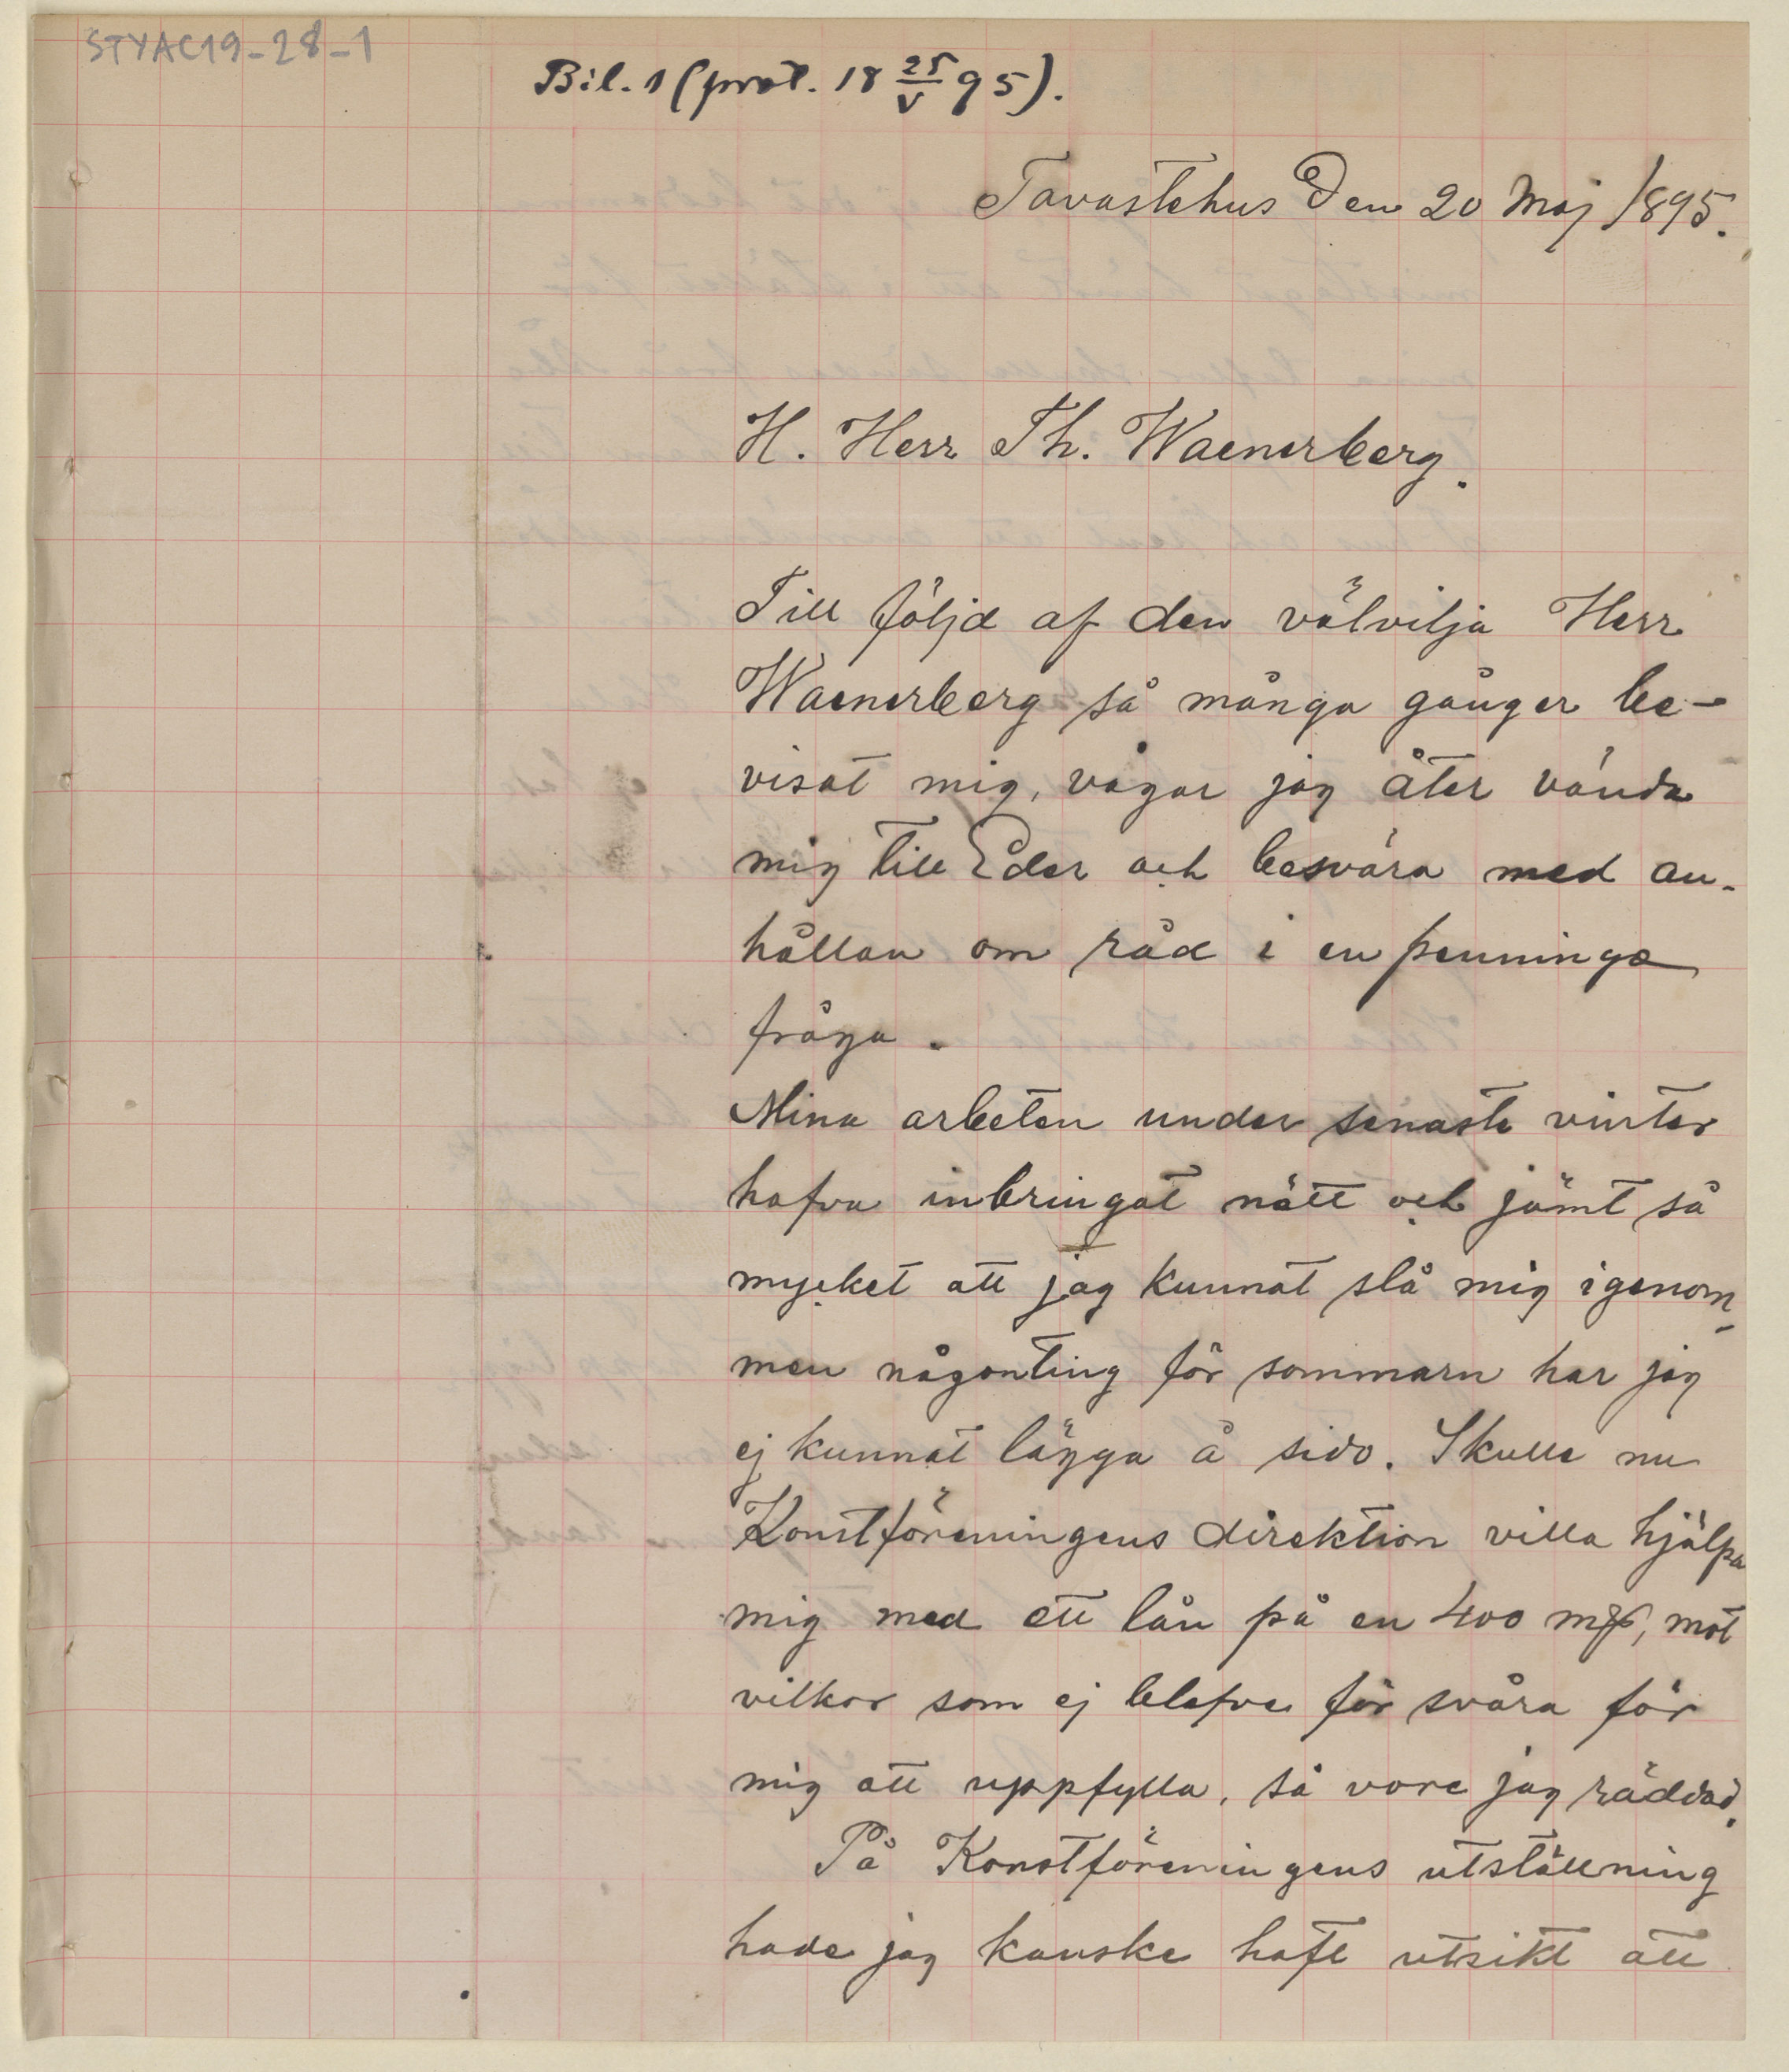 STYAC19-28-1
Bil. 1 (prot. 18 25/V 95).
Tavastehus Den 20 Maj 1895.
H. Herr Th. Waenerberg.
Till följd af den välvilja Herr
Waenerberg så många gånger be-
visat mig, vågar jag åter vända
mig till Eder och besvära med an-
hållan om råd i en penninge
fråga.
Mina arbeten under senaste vinter
hafva inbringat nätt och jämt så
mycket att jag kunnat slå mig igenom,
men någonting för sommarn har jag
ej kunnat lägga å sido. Skulle nu
Konstföreningens direktion villa hjälpa
mig med ett lån på en 400 mk, mot
vilkor som ej blefve för svåra för
mig att uppfylla, så vore jag räddad.
På Konstföreningens utställning
hade jag kanske haft utsikt att